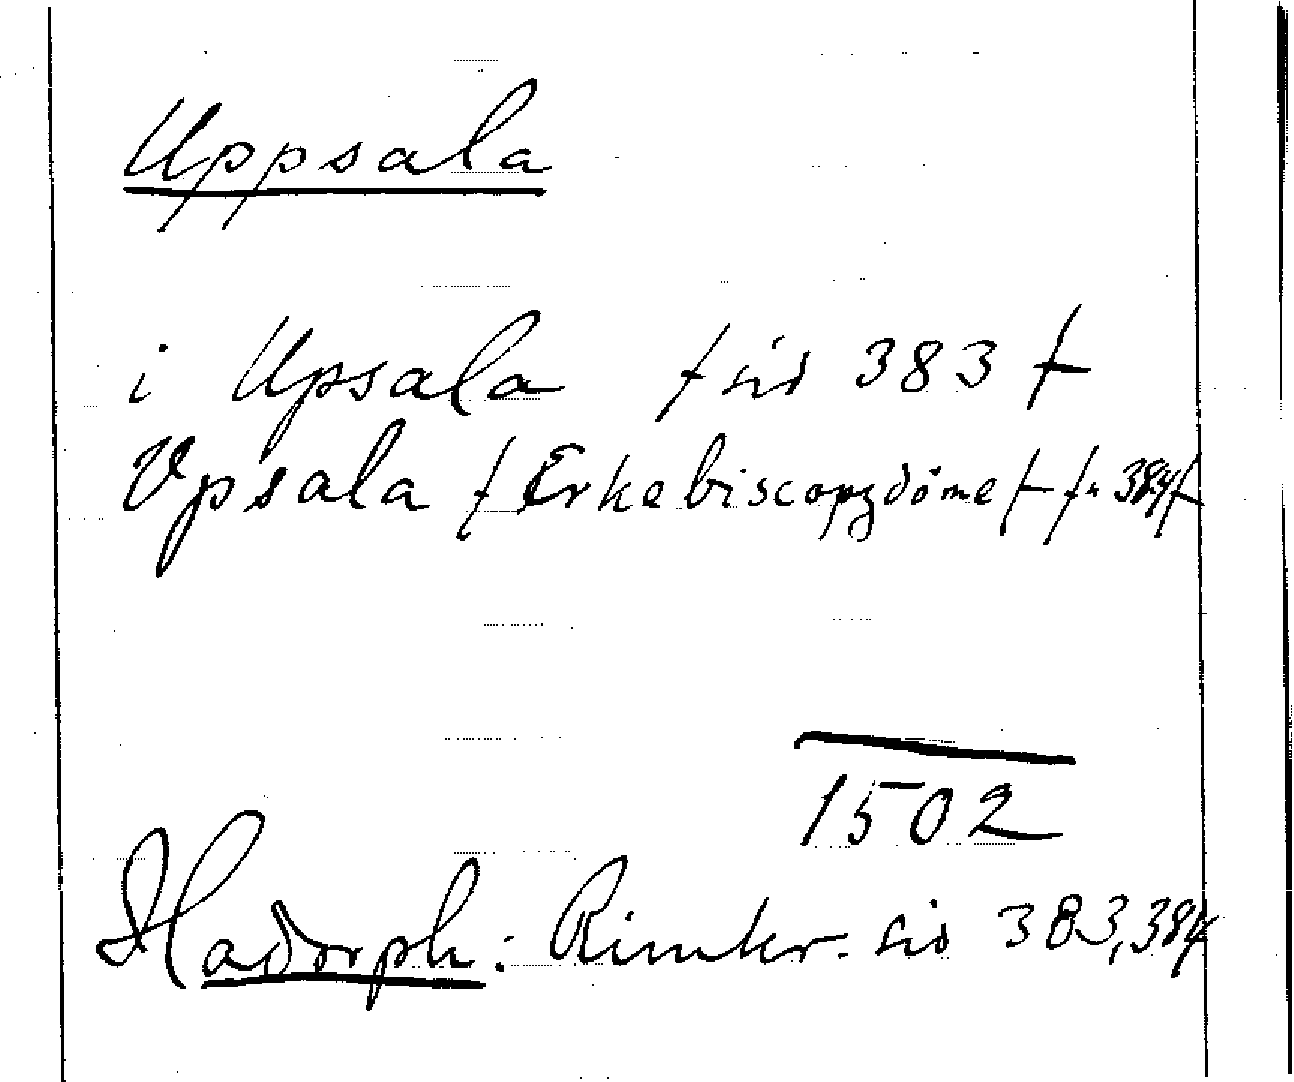 Uppsala
i Upsala / sid 383 /
Vpsala / Erkebiscopzdöme / s. 384 /
1502
Hadorph: Rimkr. sid 383, 384